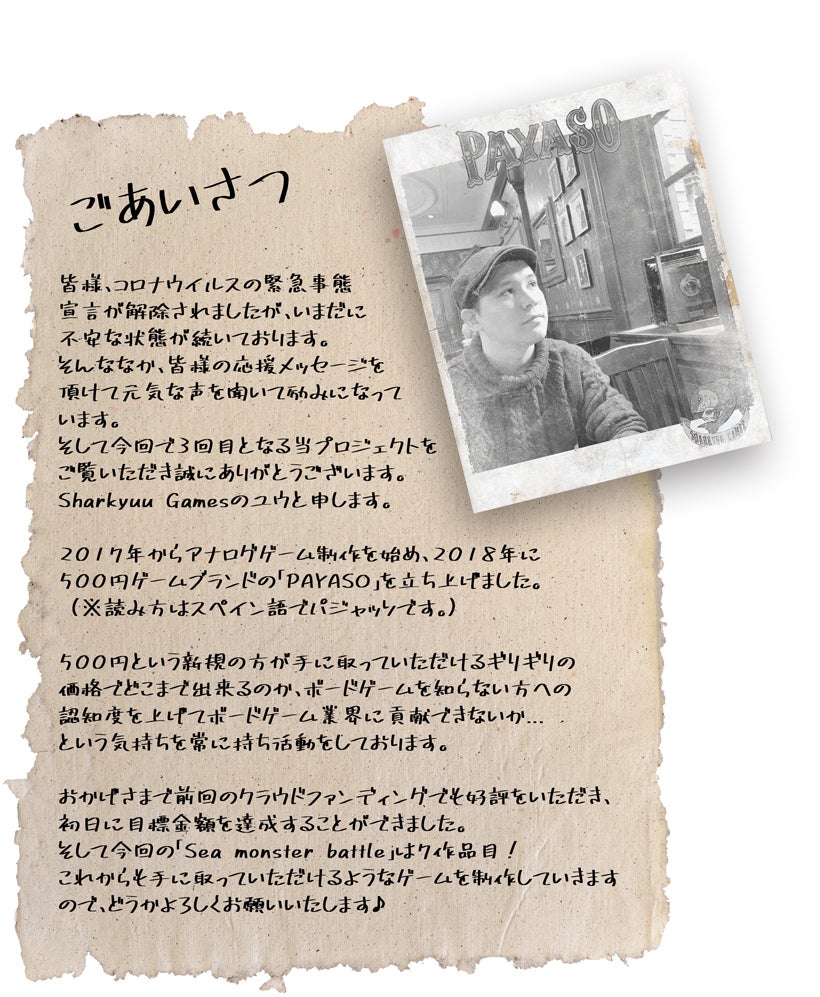 PAYASO
SHARKYUU GAMES
ごあいさつ
皆様、コロナウイルスの緊急事態
宣言が解除されましたが、いまだに
不安な状態が続いております。
そんななか、皆様の応援メッセージを
頂けて元気な声を聞いて励みになって
います。
そして今回で3回目となる当プロジェクトを
ご覧いただき誠にありがとうございます。
Sharkyuu Gamesのユウと申します。
2017年からアナログゲーム制作を始め、2018年に
500円ゲームブランドの「PAYASO」を立ち上げました。
(※読み方はスペイン語でパジャッソです。)
500円という新規の方が手に取っていただけるギリギリの
価格でどこまで出来るのか、ボードゲームを知らない方への
認知度を上げてボードゲーム業界に貢献できないか...
という気持ちを常に持ち活動をしております。
おかげさまで前回のクラウドファンディングでも好評をいただき、
初日に目標金額を達成することができました。
そして今回の「Sea monster battle」は7作品目!
これからも手に取っていただけるようなゲームを制作していきます
ので、どうかよろしくお願いいたします♪